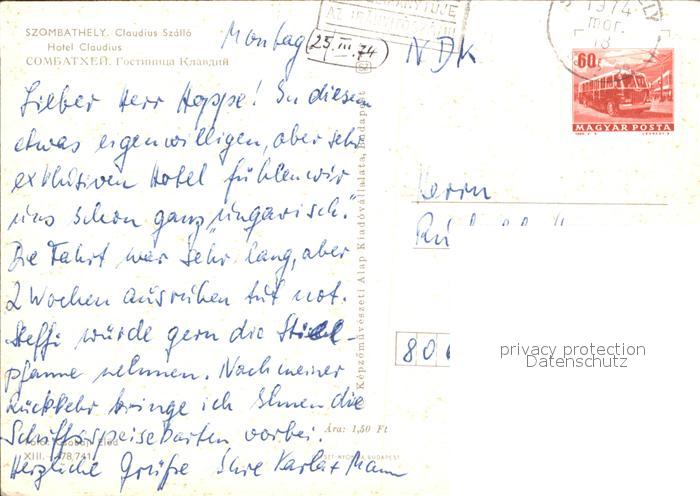 SZOMBATHELY. Claudius Szálló
Hotel Claudius
СОМБАТХЕЙ. Гостиница Клавдий
Montag
25. III. 74
Lieber Herr Hoppe! In diesem
etwas eigenwilligen, aber sehr
exklusiven Hotel fühlen wir
uns schon ganz "ungarisch."
Die Fahrt war sehr lang, aber
2 Wochen ausruhen tut not.
Steffi würde gern die Stiel-
pfanne nehmen. Nach meiner
Rückkehr bringe ich Ihnen die
Schiffsspeisekarten vorbei.
Herzliche Grüße Ihre Karla + Mann
XIII. 478,741
Képzőművészeti Alap Kiadóvállalata, Budapest
Ára: 1,50 Ft
1974
NDK
60f
MAGYAR POSTA
Herrn
80
privacy protection
Datenschutz